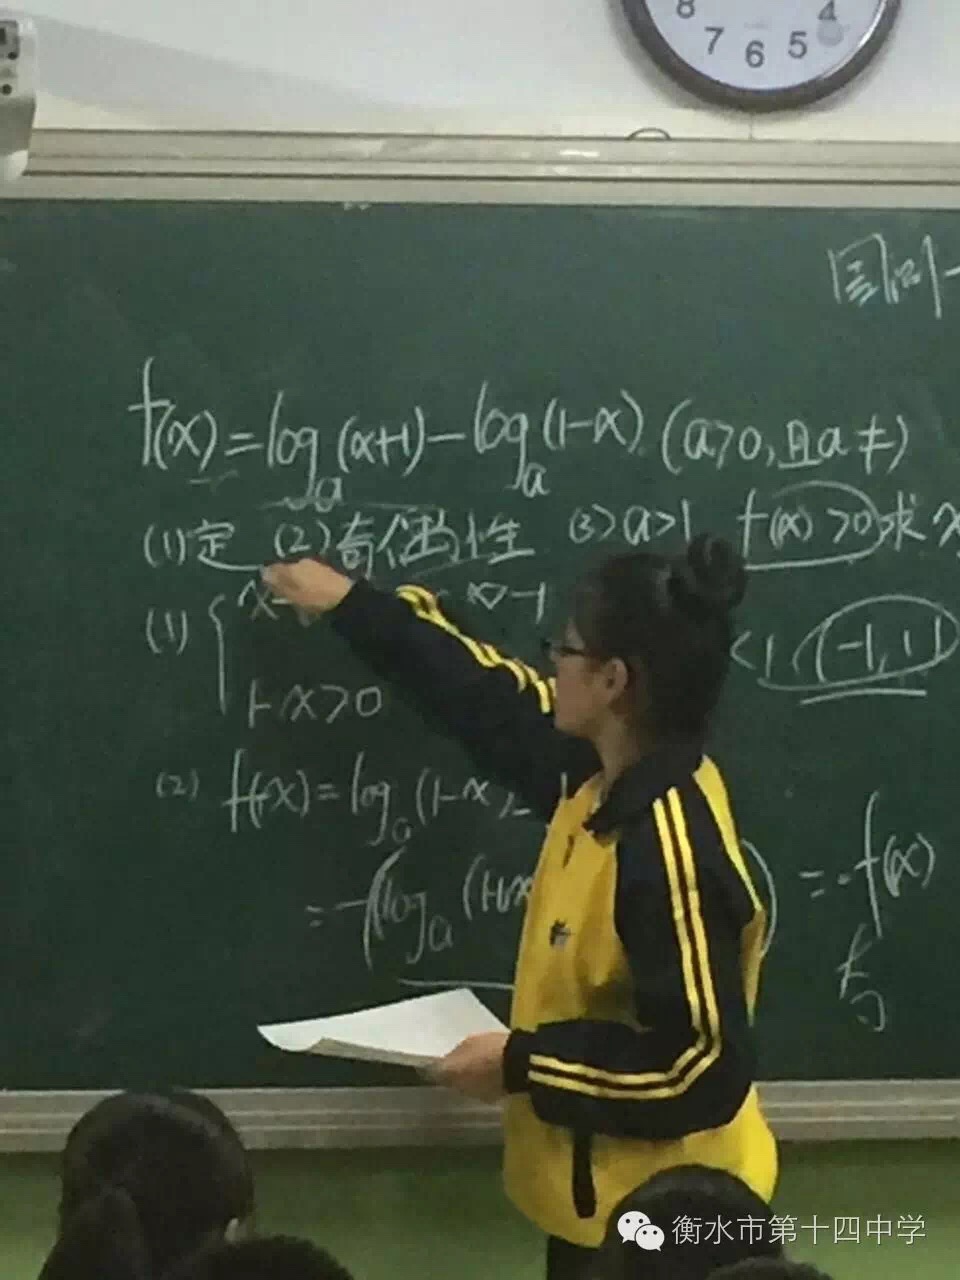 8 7 6 5 4
f(x)=log_a(x+1)-log_a(1-x).(a>0,且a≠)
(1)定 (2)奇偶性 (3)a>1 f(x)>0求x
(1) { x >-1 <1 (-1,1)
1-x>0
(2) f(-x)=log_a(1-x)-
=-(log_a(1+x )=-f(x)
奇
衡水市第十四中学